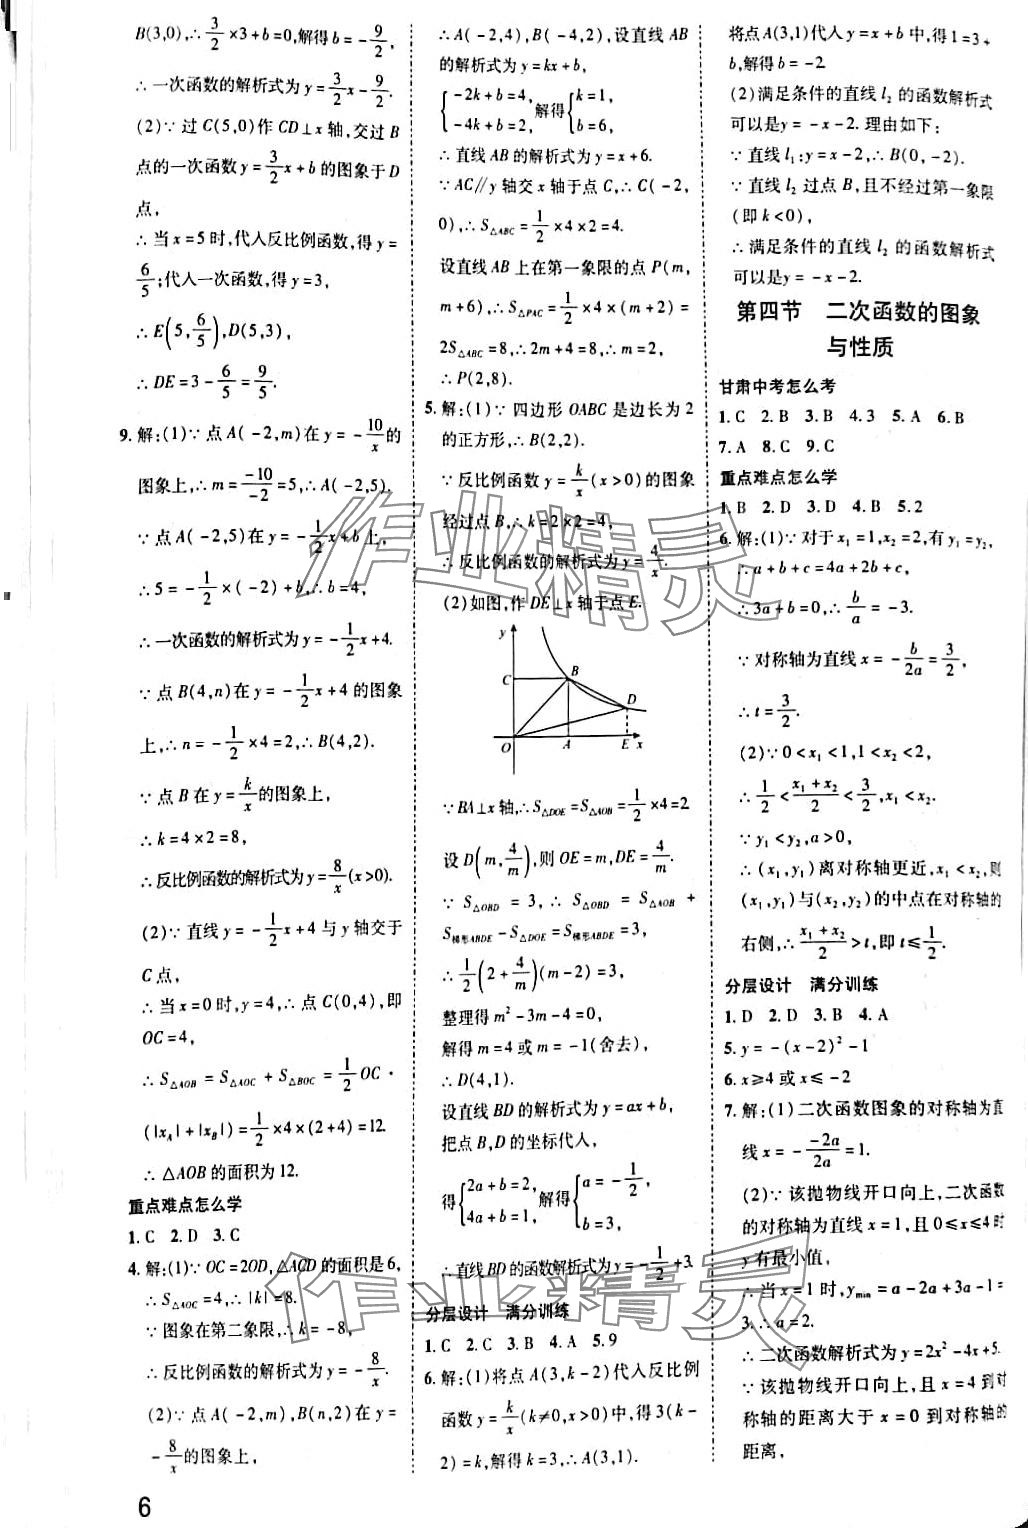 B(3,0),∴3/2×3+b=0,解得b=-9/2,
∴一次函数的解析式为y=3/2x-9/2.
(2)∵过C(5,0)作CD⊥x轴,交过B
点的一次函数y=3/2x+b的图象于D
点,
∴当x=5时,代入反比例函数,得y=
6/5;代入一次函数,得y=3,
∴E(5,6/5),D(5,3),
∴DE=3-6/5=9/5.
9.解:(1)∵点A(-2,m)在y=-10/x的
图象上,∴m=-10/-2=5,∴A(-2,5).
∵点A(-2,5)在y=-1/2x+b上,
∴5=-1/2×(-2)+b,∴b=4,
∴一次函数的解析式为y=-1/2x+4.
∵点B(4,n)在y=-1/2x+4的图象
上,∴n=-1/2×4=2,∴B(4,2).
∵点B在y=k/x的图象上,
∴k=4×2=8,
∴反比例函数的解析式为y=8/x(x>0).
(2)∵直线y=-1/2x+4与y轴交于
C点,
∴当x=0时,y=4,∴点C(0,4),即
OC=4,
∴S△AOB=S△AOC+S△BOC=1/2OC·
(|xA|+|xB|)=1/2×4×(2+4)=12.
∴△AOB的面积为12.
重点难点怎么学
1.C 2.D 3.C
4.解:(1)∵OC=2OD,△ACD的面积是6,
∴S△AOC=4,∴|k|=8.
∵图象在第二象限,∴k=-8,
∴反比例函数的解析式为y=-8/x.
(2)∵点A(-2,m),B(n,2)在y=
-8/x的图象上,
6
∴A(-2,4),B(-4,2),设直线AB
的解析式为y=kx+b,
{-2k+b=4, -4k+b=2,解得{k=1, b=6,
∴直线AB的解析式为y=x+6.
∵AC∥y轴交x轴于点C,∴C(-2,
0),∴S△ABC=1/2×4×2=4.
设直线AB上在第一象限的点P(m,
m+6),∴S△PAC=1/2×4×(m+2)=
2S△ABC=8,∴2m+4=8,∴m=2,
∴P(2,8).
5.解:(1)∵四边形OABC是边长为2
的正方形,∴B(2,2).
∵反比例函数y=k/x(x>0)的图象
经过点B,∴k=2×2=4,
∴反比例函数的解析式为y=4/x.
(2)如图,作DE⊥x轴于点E.
y
C B
D
O A E x
∵BA⊥x轴,∴S△DOE=S△AOB=1/2×4=2
设D(m,4/m),则OE=m,DE=4/m.
∵S△OBD=3,∴S△OBD=S△AOB+
S梯形ABDE-S△DOE=S梯形ABDE=3,
∴1/2(2+4/m)(m-2)=3,
整理得m²-3m-4=0,
解得m=4或m=-1(舍去),
∴D(4,1).
设直线BD的解析式为y=ax+b,
把点B,D的坐标代入,
得{2a+b=2, 4a+b=1,解得{a=-1/2, b=3,
∴直线BD的函数解析式为y=-1/2x+3.
分层设计 满分训练
1.C 2.C 3.B 4.A 5.9
6.解:(1)将点A(3,k-2)代入反比例
函数y=k/x(k≠0,x>0)中,得3(k-
2)=k,解得k=3,∴A(3,1).
将点A(3,1)代入y=x+b中,得1=3+
b,解得b=-2.
(2)满足条件的直线l₂的函数解析式
可以是y=-x-2.理由如下:
∵直线l₁:y=x-2,∴B(0,-2).
∵直线l₂过点B,且不经过第一象限
(即k<0),
∴满足条件的直线l₂的函数解析式
可以是y=-x-2.
第四节 二次函数的图象
与性质
甘肃中考怎么考
1.C 2.B 3.B 4.3 5.A 6.B
7.A 8.C 9.C
重点难点怎么学
1.B 2.D 3.D 4.B 5.2
6.解:(1)∵对于x₁=1,x₂=2,有y₁=y₂,
∴a+b+c=4a+2b+c,
∴3a+b=0,∴b/a=-3.
∵对称轴为直线x=-b/2a=3/2,
∴t=3/2.
(2)∵0<x₁<1,1<x₂<2,
∴1/2<x₁+x₂/2<3/2,x₁<x₂.
∵y₁<y₂,a>0,
∴(x₁,y₁)离对称轴更近,x₁<x₂,则
(x₁,y₁)与(x₂,y₂)的中点在对称轴的
右侧,∴x₁+x₂/2>t,即t≤1/2.
分层设计 满分训练
1.D 2.D 3.B 4.A
5.y=-(x-2)²-1
6.x≥4或x≤-2
7.解:(1)二次函数图象的对称轴为直
线x=--2a/2a=1.
(2)∵该抛物线开口向上,二次函数
的对称轴为直线x=1,且0≤x≤4时
y有最小值,
∴当x=1时,ymin=a-2a+3a-1=
3.∴a=2.
∴二次函数解析式为y=2x²-4x+5.
∵该抛物线开口向上,且x=4到对
称轴的距离大于x=0到对称轴的
距离,
作业精灵
作业精灵